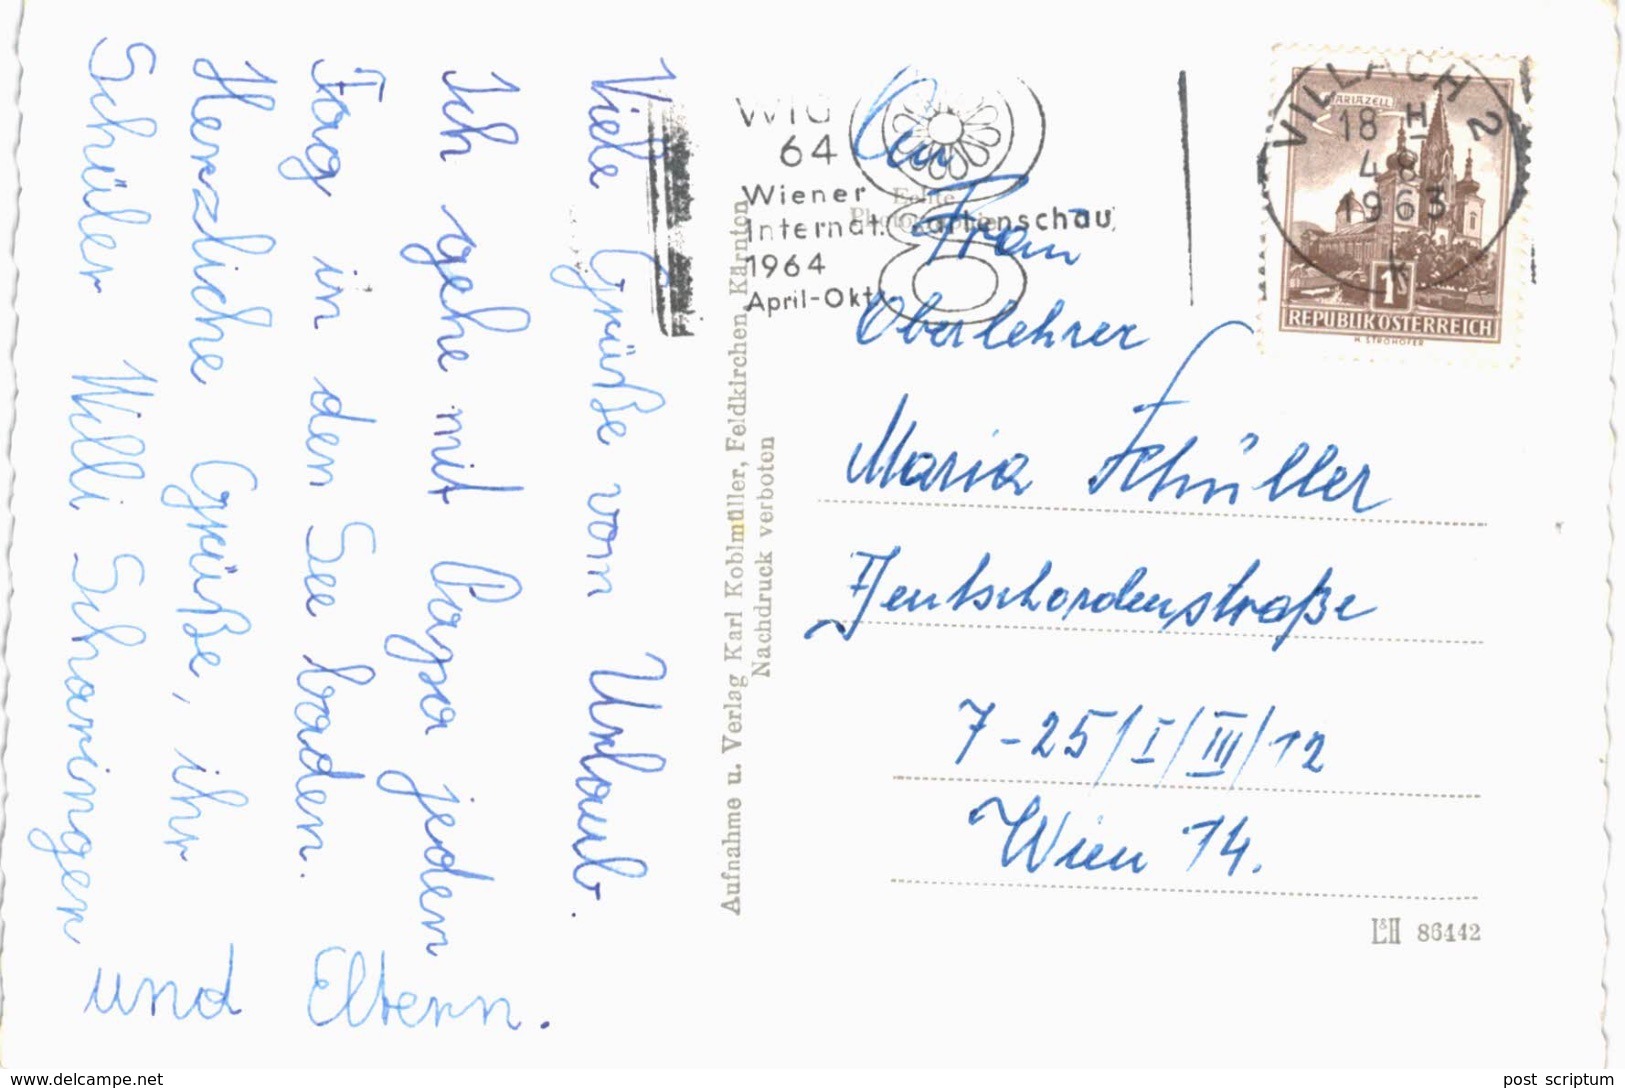 Viele Grüße vom Urlaub.
Ich gehe mit Papa jeden
Tag in den See baden.
Herzliche Grüße, ihr
Schüler Willi Scharinger
und Eltern.
Aufnahme u. Verlag Karl Koblmüller, Feldkirchen, Kärnten
Nachdruck verboten
WIG
64
Wiener
Internat. Gartenschau
1964
April-Okt.
Echte
An
Frau
Oberlehrer
Maria Schüller
Deutschordenstraße
7-25/I/III/12
Wien 14.
VILLACH 2
18 H
4 8
1963
k
MARIAZELL
1S
REPUBLIK ÖSTERREICH
H. STROHOFER
L&H 86442
www.delcampe.net
post_scriptum